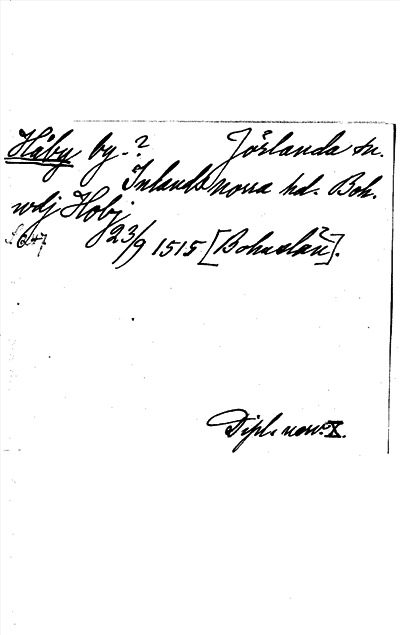 Håby by-? Jörlanda sn.
Inlands norra hd. Boh.
wdj Hobj
S. 647 23/9 1515 [Bohuslän].
Dipl. norv. X.